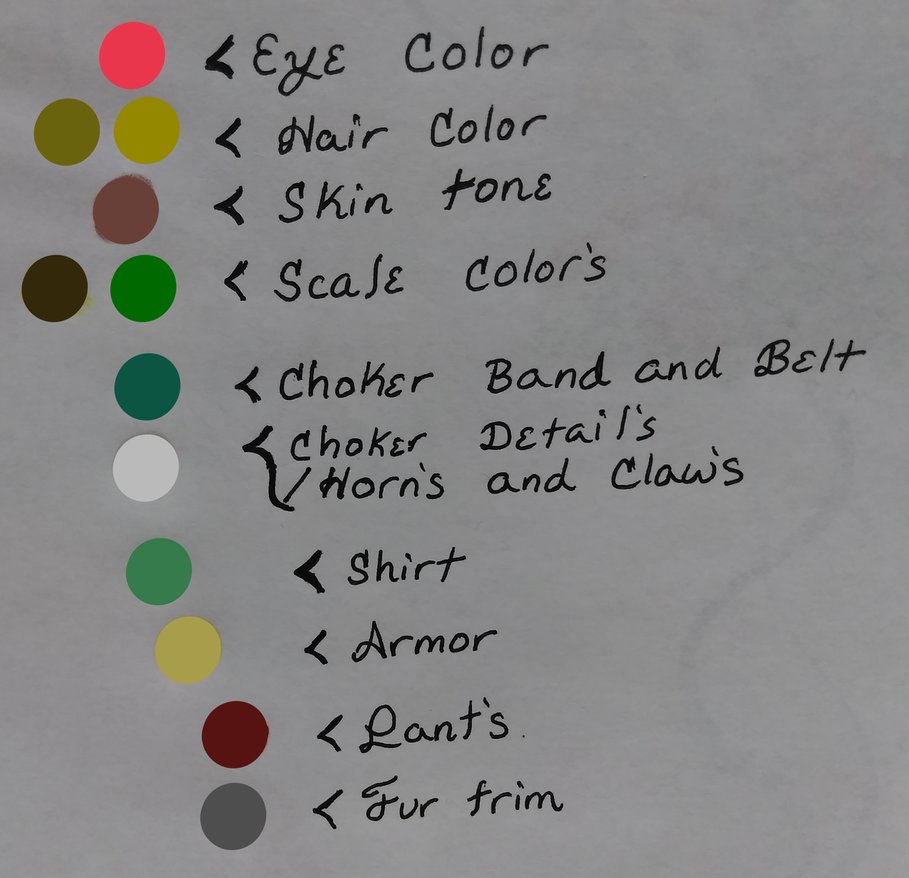 < Eye Color
< Hair Color
< Skin tone
< Scale Color's
< Choker Band and Belt
< Choker Detail's
/ Horn's and Claw's
< Shirt
< Armor
< Pant's
< Fur trim